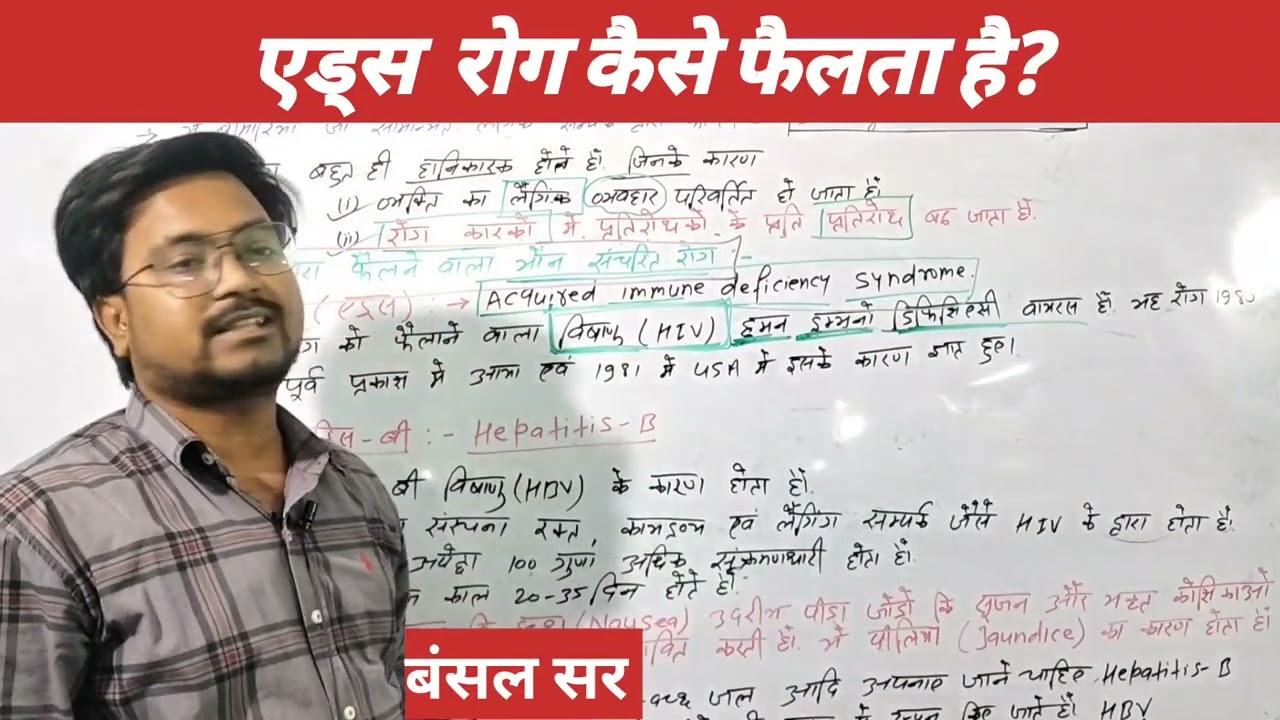 एड्स रोग कैसे फैलता है?
बहुत ही हानिकारक होते हैं. जिनके कारण
(i) व्यक्ति का लैंगिक व्यवहार परिवर्तित हो जाता है.
(ii) रोग कारको में प्रतिरोधको के प्रति प्रतिरोध बढ जाता है.
फैलने वाला यौन संचरित रोग :-
(एड्स) : → Acquired immune deficiency syndrome.
को फैलाने वाला विषाणु (HIV) हुमन इम्यनो डिफिसिएंसी वायरस हैं. यह रोग 1980
पूर्व प्रकाश मे आया एवं 1981 मे USA मे इसके कारण ज्ञात हुए।
बी : - Hepatitis - B
बी विषाणु (HBV) के कारण होता है.
रक्त, एवं लैंगिंग सम्पर्क जैसे HIV के द्वारा होता है.
अपेक्षा 100 गुणा अधिक होता है.
काल 20-35 दिन होते है.
(Nausea) उदरीय पीडा जोड़ो कि सूजन और यकृत कोशिकाओ
करती हैं. ये पीलिया (Jaundice) का कारण होता है
जल आदि अपनाए जाने चाहिए Hepatitis-B
जाते है HBV
बंसल सर